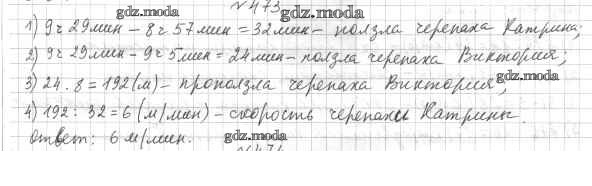 №473
gdz.moda gdz.moda
1) 9ч 29мин – 8ч 57мин = 32мин – ползла черепаха Катрина;
2) 9ч 29мин – 9ч 5мин = 24мин – ползла черепаха Виктория;
gdz.moda gdz.moda
3) 24 · 8 = 192 (м) – проползла черепаха Виктория;
4) 192 : 32 = 6 (м/мин) – скорость черепахи Катрины.
ответ: 6 м/мин. gdz.moda